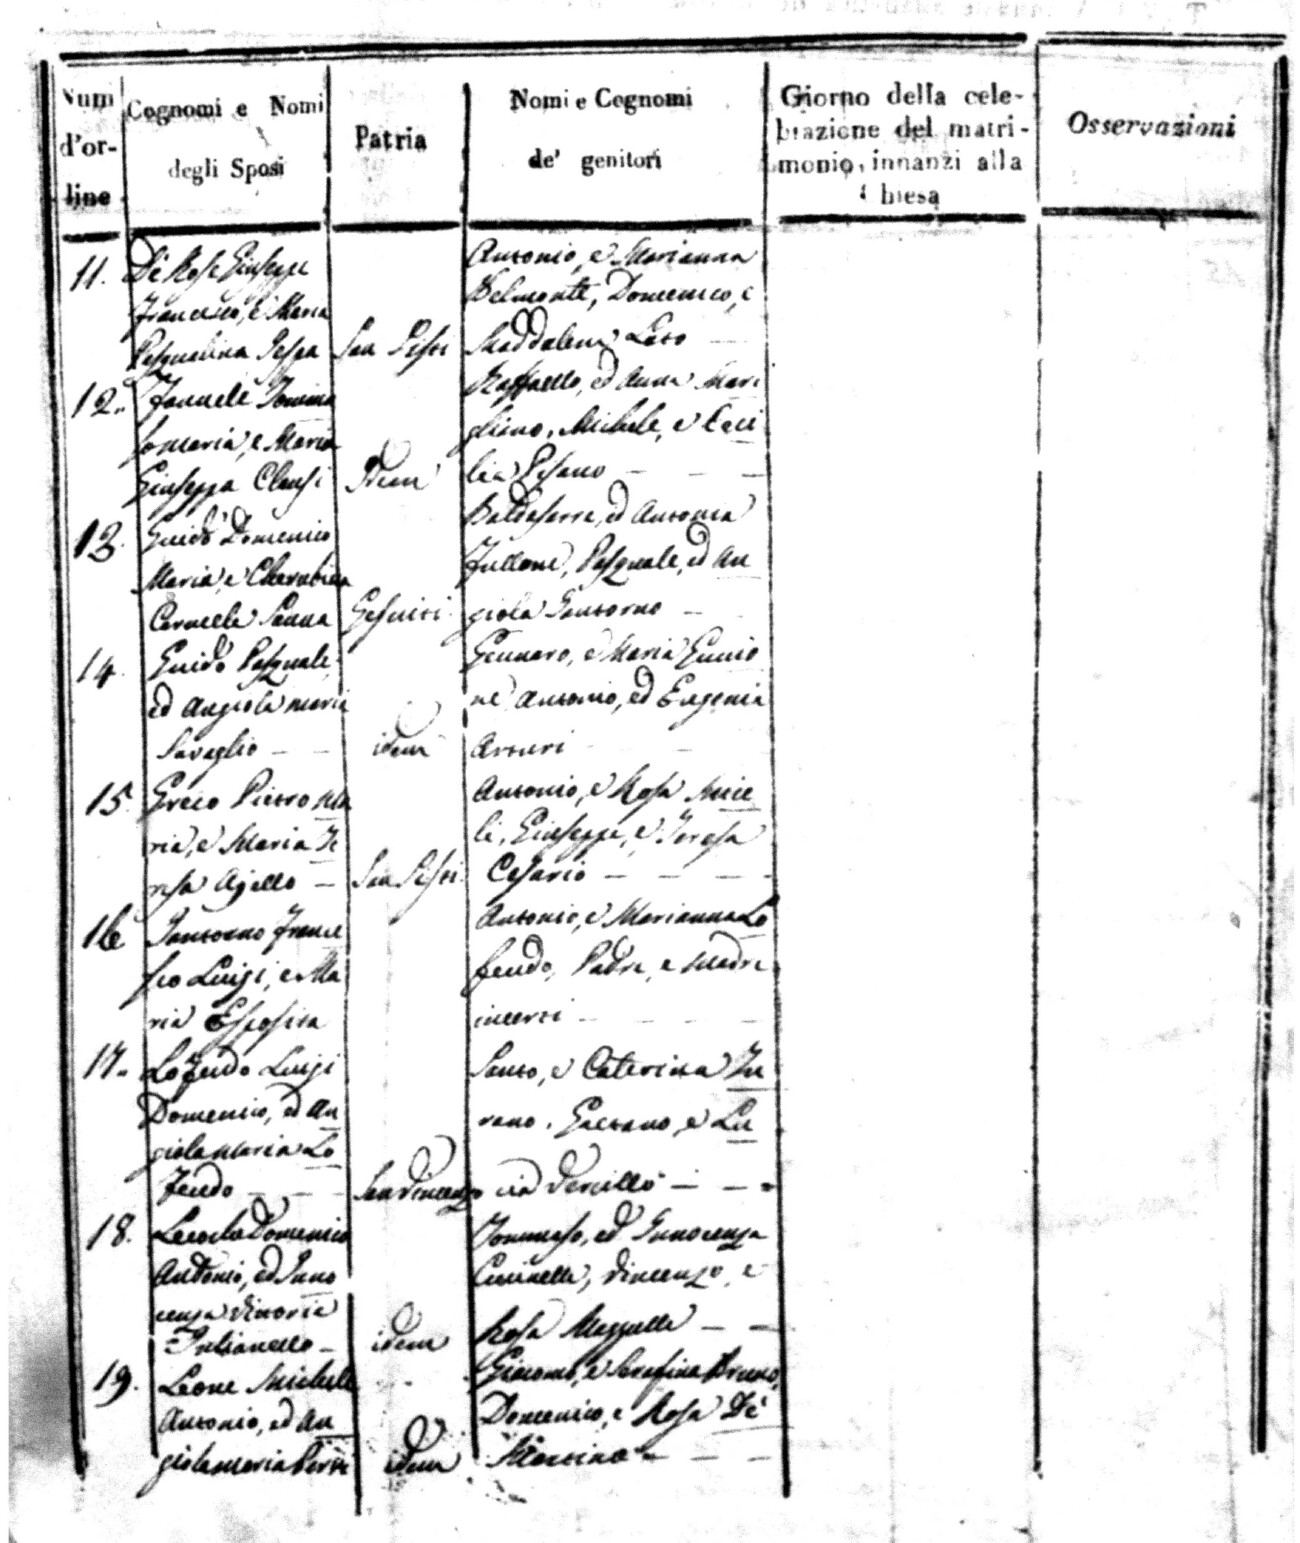 Num d'or-dine
Cognomi e Nomi degli Sposi
Patria
Nomi e Cognomi de' genitori
Giorno della cele-
brazione del matri-
monio, innanzi alla
Chiesa
Osservazioni
11. De Rose Giuseppe
Francesco, e Maria
Pasqualina
San Sisti
Antonio, e Marianna
Belmonte, Domenico, e
Maddalena Lato
12.
Maria, e Maria
Giuseppa Clausi
Idem
Raffaello, ed Anna Mari
gliano, Michele, e Ceci
lia Pisano
13. Guido Domenico
Maria, e Cherubina
Carmela Sanna
Gesuiti
Baldasarre, ed Antonia
Fullone, Pasquale, ed An
giola Santoro
14. Guido Pasquale,
ed Angiola Maria
Savaglio
idem
Gennaro, e Maria
Antonio, ed Eugenia
Arturi
15. Greco Pietro Ma
ria, e Maria Te
resa Ajello
San Sisti
Antonio, e Rosa Mice
li, Giuseppe, e Teresa
Cesario
16 Santoro France
sco Luigi, e Ma
ria Esposita
Antonio, e Marianna Lo
feudo, Padre, e Madre
incerti
17. Lo feudo Luigi
Domenico, ed An
giolamaria Lo
feudo
San Vincenzo
Santo, e Caterina Tu
rano, Gaetano, e Lu
cia Vercillo
18. Domenico
Antonio, ed Inno
cenza Vittoria
idem
Tommaso, ed Innocenza
Vincenzo, e
Rosa Mazzulla
19. Leone Michele
Antonio, ed An
giolamaria Perri
idem
Giacomo, e Serafina Bruno,
Domenico, e Rosa De
Martino